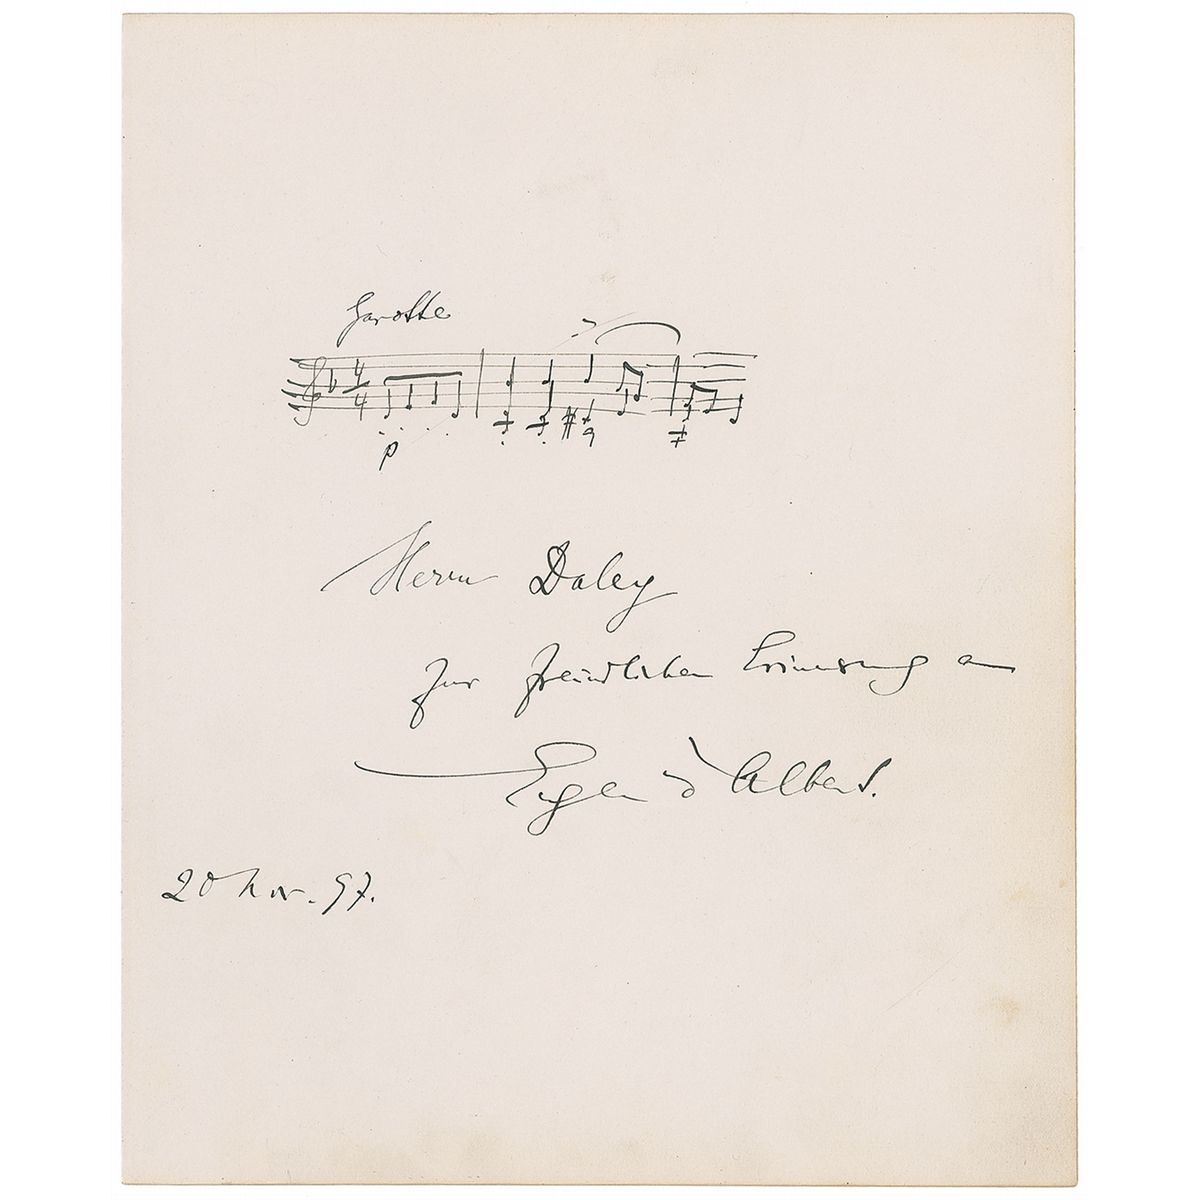 Gavotte
4
4
p
Herrn Daley
zur freundlichen Erinnerung an
Eugen d'Albert.
20 Nov. 97.